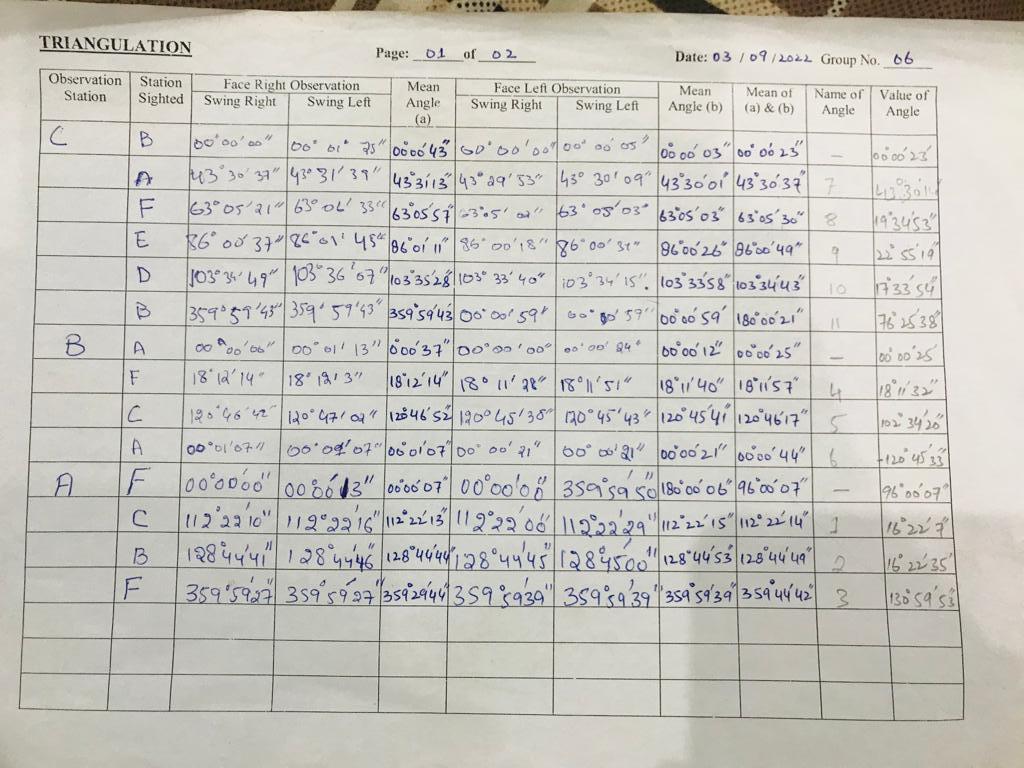 TRIANGULATION
Page: 01 of 02 Date: 03 / 09 / 2022 Group No. 06
Observation Station Station Sighted Face Right Observation Mean Angle (a) Face Left Observation Mean Angle (b) Mean of (a) & (b) Name of Angle Value of Angle
Swing Right Swing Left Swing Right Swing Left
C B 00°00'00" 00° 01' 25" 00°00'43" 00°00'00" 00° 00' 05" 00°00'03" 00°00'23" – 00°00'23"
A 43°30'37" 43°31'39" 43°31'13" 43°29'53" 43° 30'09" 43°30'01" 43°30'37" 7
F 63°05'21" 63°06'33" 63°05'57" 63°05'02" 63° 05'03" 63°05'03" 63°05'30" 8 19°34'53"
E 86°00'37" 86°01'45" 86°01'11" 86°00'18" 86°00'31" 86°00'26" 86°00'49" 9 22°55'19"
D 103°34'49" 103°36'07" 103°35'28" 103°33'40" 103°34'15" 103°33'58" 103°34'43" 10 17°33'54"
B 359°59'43" 359°59'43" 359°59'43 00°00'59" 00°00'59" 00°00'59" 180°00'21" 11 76°25'38"
B A 00°00'00" 00°01'13" 0°00'37" 00°00'00" 00°00'24" 00°00'12" 00°00'25" – 00°00'25"
F 18°12'14" 18°12'13" 18°12'14" 18°11'28" 18°11'51" 18°11'40" 18°11'57" 4 18°11'32"
C 120°46'42" 120°47'02" 120°46'52" 120°45'38" 120°45'43" 120°45'41 120°46'17" 5 102°34'20"
A 00°01'07" 00°01'07" 00°01'07" 00°00'21" 00°00'21" 00°00'21" 00°00'44" 6 -120°45'33"
A F 00°00'00" 00°00'13" 00°00'07" 00°00'00" 359°59'50 180°00'06" 96°00'07" – 96°00'07"
C 112°22'10" 112°22'16" 112°22'13" 112°22'00" 112°22'29" 112°22'15" 112°22'14" 1 16°22'7"
B 128°44'41" 128°44'46" 128°44'44" 128°44'45" 128°45'00" 128°44'53" 128°44'49" 2 16°22'35"
F 359°59'27" 359°59'27" 359°29'44" 359°59'39" 359°59'39" 359°59'39" 359°44'42" 3 130°59'53"